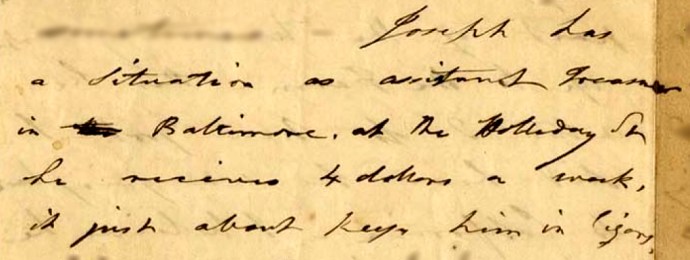 Joseph has
a situation as assistant Treasurer
in Baltimore, at the Holliday St
he receives 4 dollars a week,
it just about keeps him in Cigars,